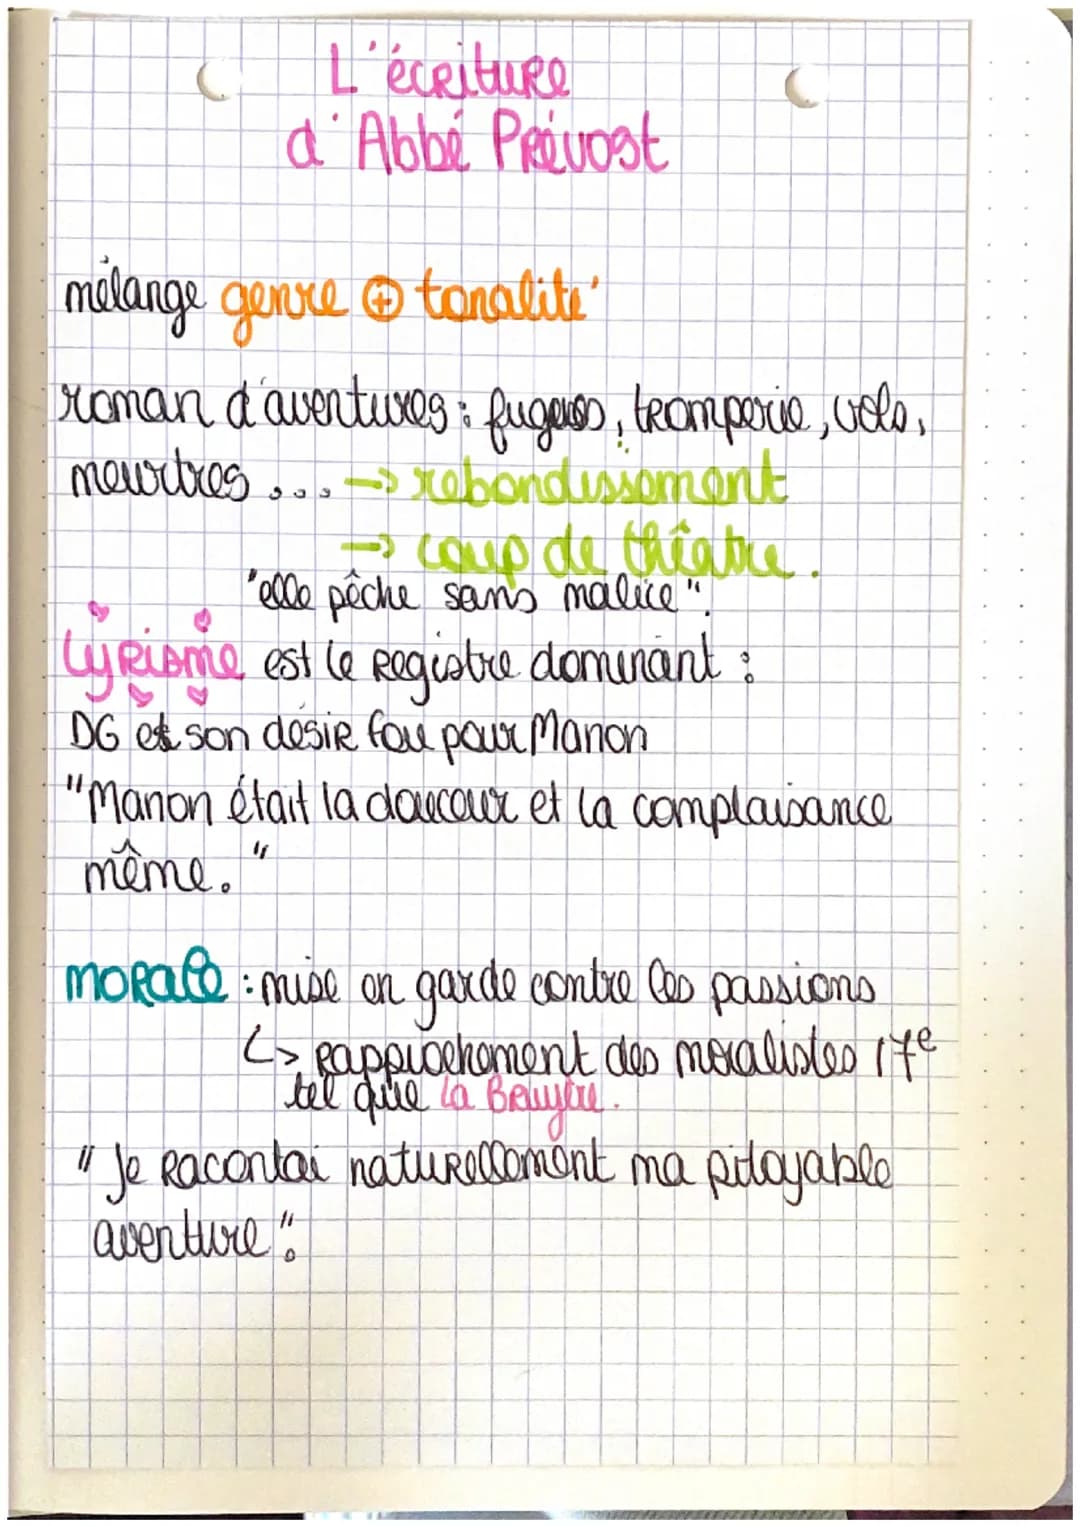 L'écriture
d'Abbé Prévost
mélange genre ⊕ tonalité
roman d'aventures : fugues, tromperie, vols,
meurtres ... → rebondissement
→ coup de théatre.
"elle pêche sans malice".
Lyrisme est le registre dominant :
DG et son désir fou pour Manon
"Manon était la douceur et la complaisance
même."
morale : mise en garde contre les passions
↳ rapprochement des moralistes 17e
tel que La Bruyère.
"Je racontai naturellement ma pitoyable
aventure".